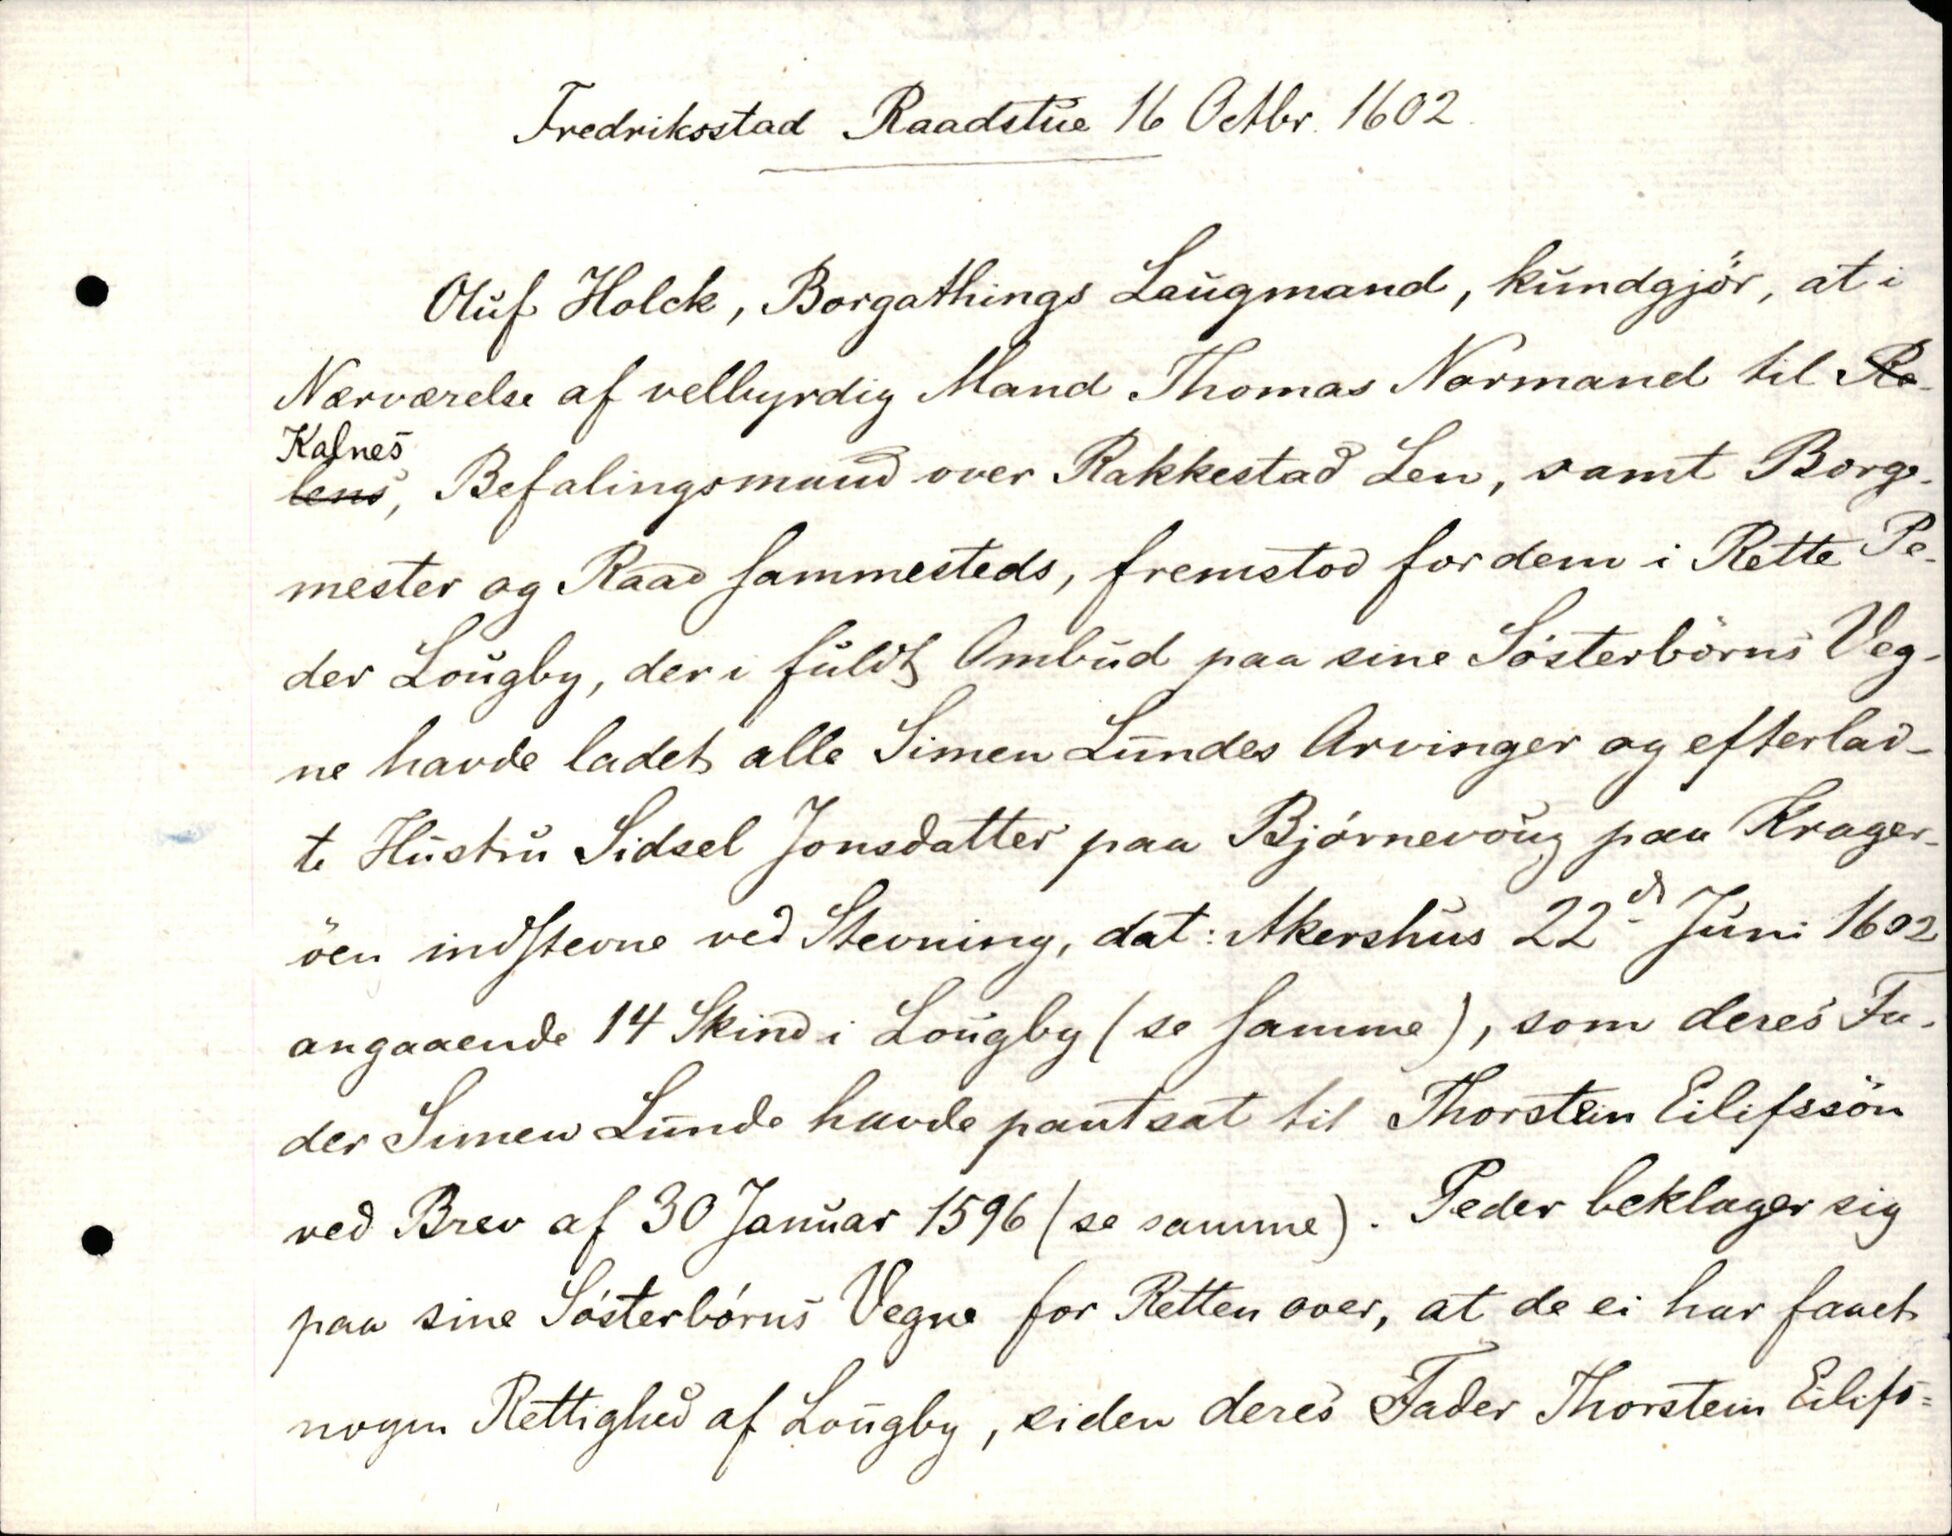 Fredriksstad Raadstue 16 Octbr. 1602.
Oluf Holck, Borgathings Laugmand, kundgjör, at i
Nærværelse af velbyrdig Mand Thomas Normand til Ro-
Kalnes
lens, Befalingsmand over Rakkestad Len, samt Borge-
mester og Raad sammesteds, fremstod for dem i Rette Pe-
der Lougby, der i fuldt Ombud paa sine Sösterbörns Veg-
ne havde ladet alle Simen Lundes Arvinger og efterlad-
te Hustru Sidsel Jonsdatter paa Björnevoug paa Krager-
öen indstevne ved Stevning, dat: Akershus 22d Juni 1602
angaaende 14 Skind i Lougby (se samme), som deres Fa-
der Simen Lunde havde pantsat til Thorstein Eilifssön
ved Brev af 30 Januar 1596 (se samme). Peder beklager sig
paa sine Sösterbörns Vegne for Retten over, at de ei har faaet
nogen Rettighed af Lougby, siden deres Fader Thorstein Eilifs=